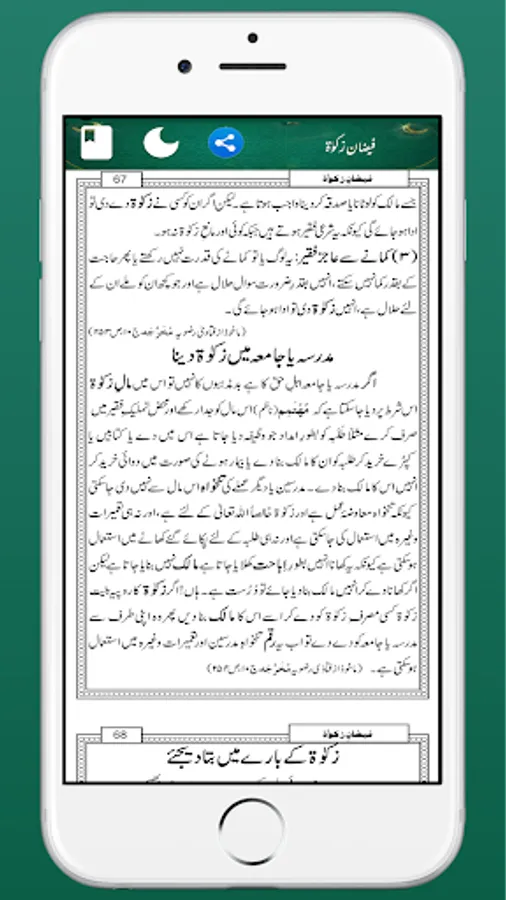 فیضان زکوٰۃ
67
فیضانِ زکوٰۃ
جسے مالک کو لوٹانا یا صدقہ کر دینا واجب ہوتا ہے۔ لیکن اگر ان کو کسی نے زکوٰۃ دے دی تو
ادا ہو جائے گی کیونکہ یہ شرعی فقیر ہوتے ہیں جبکہ کوئی اور مانعِ زکوٰۃ نہ ہو۔
(۳) کمانے سے عاجز فقیر: یہ لوگ یا تو کمانے کی قدرت نہیں رکھتے یا پھر حاجت
کے بقدر کما نہیں سکتے، انہیں بقدرِ ضرورت سوال حلال ہے اور جو کچھ ان کو ملے ان کے
لئے حلال ہے، انہیں زکوٰۃ دی تو ادا ہو جائے گی۔
(ماخوذ از فتاویٰ رضویہ مُخَرَّجہ ج۱۰ ص۲۵۳)
مدرسہ یا جامعہ میں زکوٰۃ دینا
اگر مدرسہ یا جامعہ اہلِ حق کا ہے بدمذہبوں کا نہیں تو اس میں مالِ زکوٰۃ
اس شرط پر دیا جا سکتا ہے کہ مُہْتَمِم (ناظم) اس مال کو جدا رکھے اور محض تملیکِ فقیر میں
صرف کرے مثلاً طلبہ کو بطورِ امداد جو وظیفہ دیا جاتا ہے اس میں دے یا کتابیں یا
کپڑے خرید کر طلبہ کو ان کا مالک بنا دے یا بیمار ہونے کی صورت میں دوائی خرید کر
انہیں اس کا مالک بنا دے۔ مدرسین یا دیگر عملے کی تنخواہ اس مال سے نہیں دی جا سکتی
کیونکہ تنخواہ معاوضۂ عمل ہے اور زکوٰۃ خالصاً اللہ تعالیٰ کے لئے ہے، اور نہ ہی تعمیرات
وغیرہ میں استعمال کی جا سکتی ہے اور نہ ہی طلبہ کے لئے پکائے گئے کھانے میں استعمال
ہو سکتی ہے کیونکہ یہ کھانا انہیں بطورِ اِباحت کھلایا جاتا ہے مالک نہیں بنایا جاتا ہے لیکن
اگر کھانا دے کر انہیں مالک بنا دیا جائے تو دُرُست ہے۔ ہاں! اگر زکوٰۃ کا روپیہ بہ نیت
زکوٰۃ کسی مصرفِ زکوٰۃ کو دے کر اسے اس کا مالک بنا دیں پھر وہ اپنی طرف سے
مدرسہ یا جامعہ کو دے دے تو اب یہ رقم تنخواہِ مدرسین اور تعمیرات وغیرہ میں استعمال
ہو سکتی ہے۔ (ماخوذ از فتاویٰ رضویہ مُخَرَّجہ ج۱۰ ص۲۵۴)
68
فیضانِ زکوٰۃ
زکوٰۃ کے بارے میں بتا دیجئے